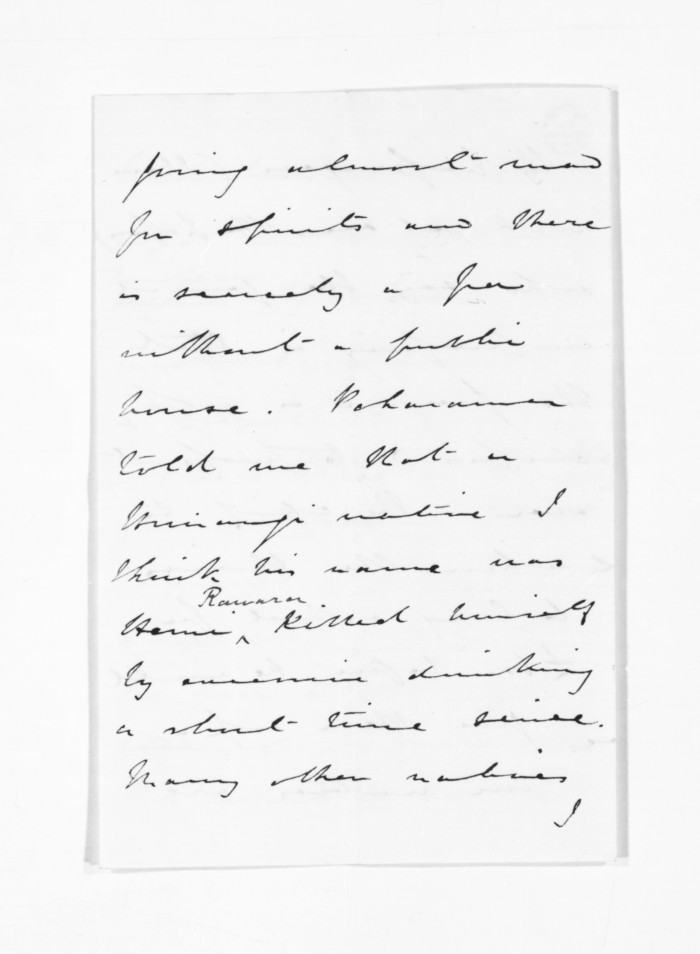 going almost mad
for spirits and there
is scarcely a pa
without a public
house. Poharama
told me that a
native I
think his name was
Hemi ^ Rawara killed himself
by excessive drinking
a short time since.
Many other natives
I